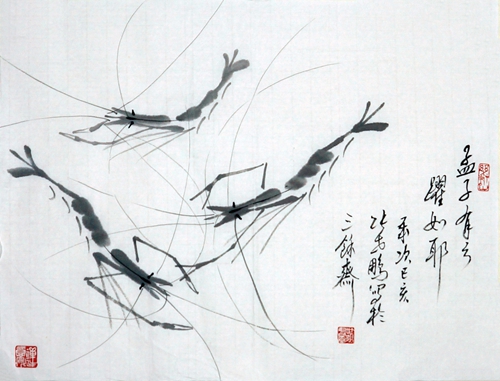 孟子有云
躍如耶
歲次己亥
鵬寫於
三餘齋